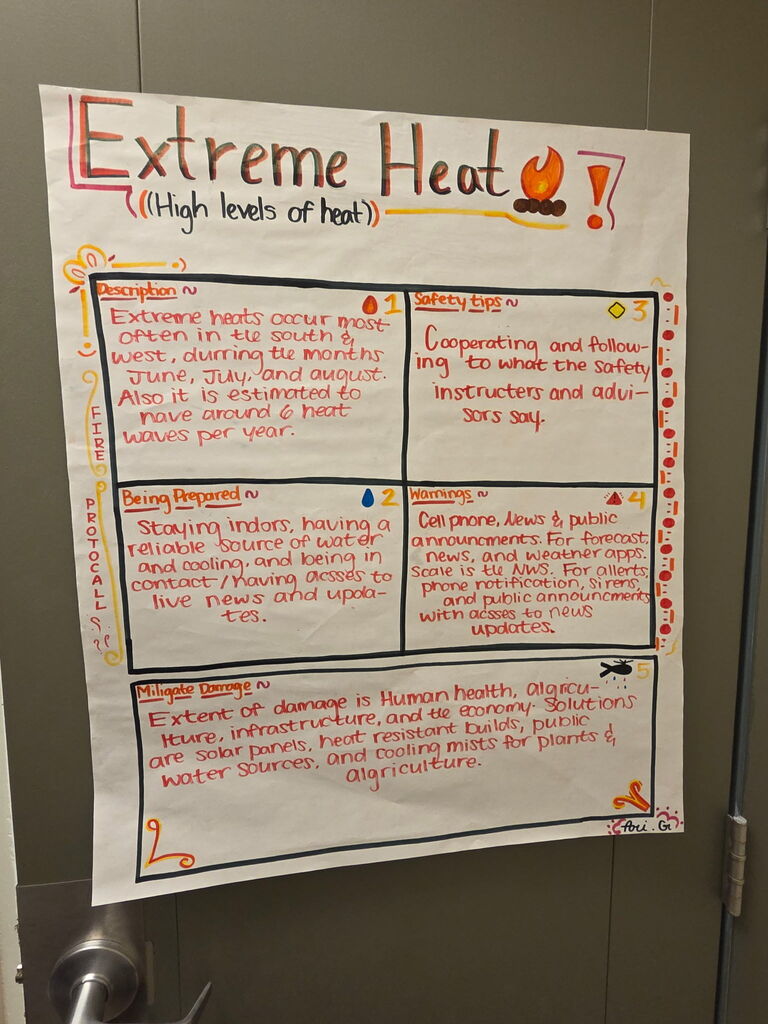 Extreme Heat!
((High levels of heat))
Description ~
1
Extreme heats occur most
often in the south &
west, durring the months
June, July, and august.
Also it is estimated to
have around 6 heat
waves per year.
Safety tips ~
3
Cooperating and follow-
ing to what the safety
instructers and advi-
sors say.
Being Prepared ~
2
Staying indors, having a
reliable source of water
and cooling, and being in
contact/having acsses to
live news and upda-
tes.
Warnings ~
4
Cell phone, News & public
announcments. For forecast,
news, and weather apps.
Scale is the NWS. For allerts,
phone notification, sirens,
and public announcments
with acsses to news
updates.
Miligate Damage ~
5
Extent of damage is Human health, algricu-
lture, infrastructure, and the economy. Solutions
are solar panels, heat resistant builds, public
water sources, and cooling mists for plants &
algriculture.
FIRE
PROTOCALLS